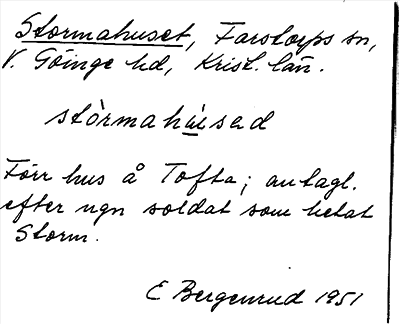 Stormahuset, Farstorps sn,
V. Göinge hd, Krist. län.
stòrmahúsed
Förr hus å Tofta; antagl.
efter ngn soldat som hetat
Storm.
E Bergenrud 1951